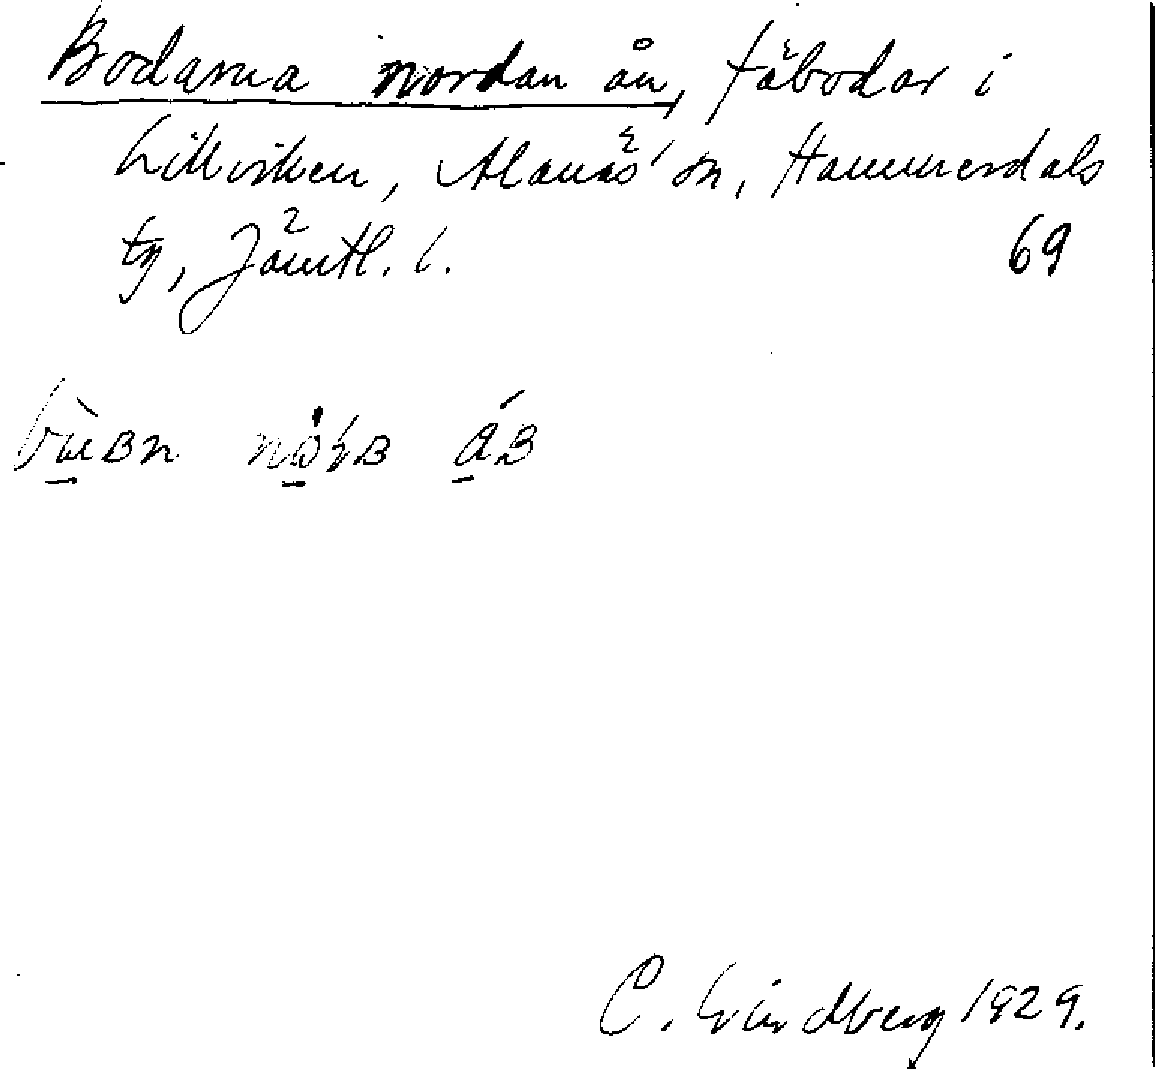 Bodarna nordan ån, fäbodar i
Lillviken, Alanäs' sn, Hammerdals
tg, Jämtl. l.
69
C. Lindberg 1929.